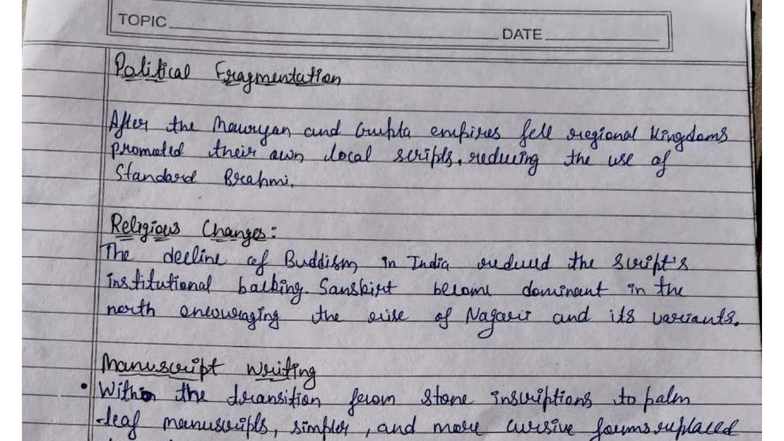 TOPIC
DATE
Political Fragmentation
After the Mauryan and Gupta empires fell regional kingdoms
promoted their own local scripts, reducing the use of
Standard Brahmi.
Religious Changes:
The decline of Buddism in India reduced the script's
institutional backing. Sanskirt become dominant in the
north encouraging the rise of Nagari and its variants.
Manuscript Writing
• Within the transition from stone inscriptions to palm
-leaf manuscripts, simpler, and more cursive forms replaced